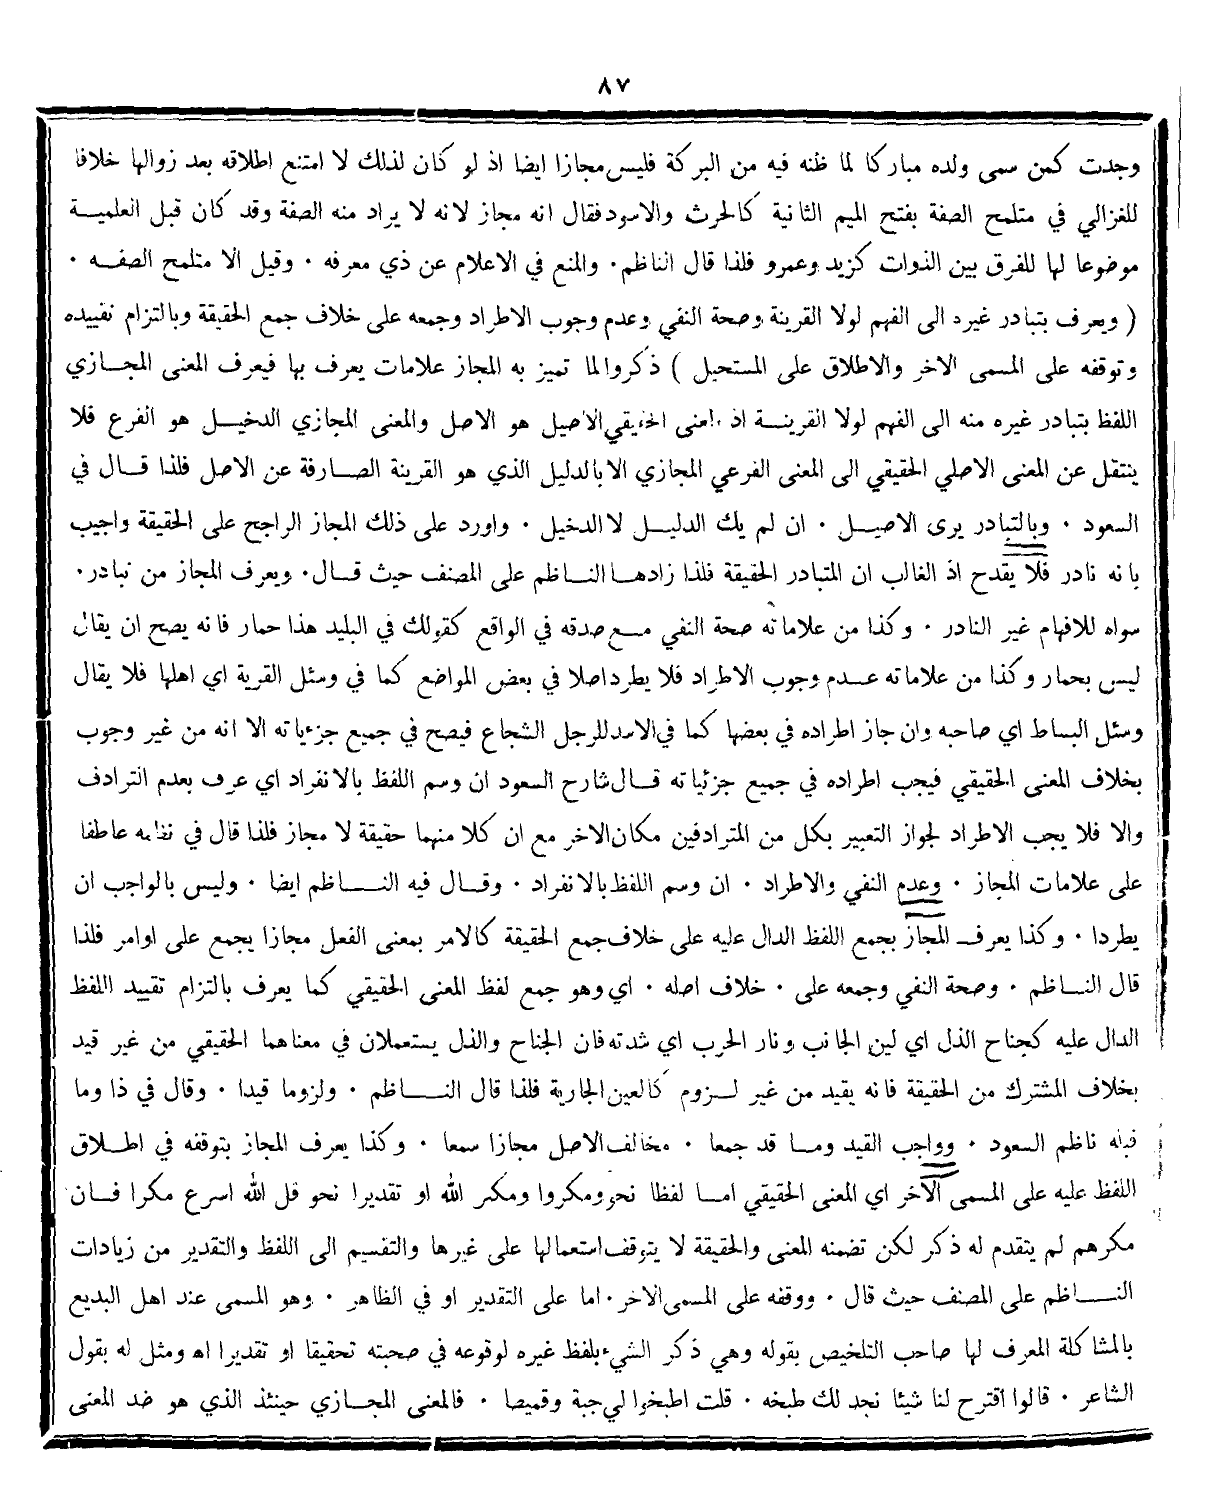 ٨٧
وجدت كمن سمى ولده مباركا لما ظنه فيه من البركة فليس مجازا ايضا اذ لو كان لذلك لا امتنع اطلاقه بعد زوالها خلافا
للغزالي في متلمح الصفة بفتح الميم الثانية كالحرث والاسود فقال انه مجاز لانه لا يراد منه الصفة وقد كان قبل العلميـة
موضوعا لها للفرق بين الذوات كزيد وعمرو فلذا قال الناظم ٠ والمنع في الاعلام عن ذي معرفه ٠ وقيل الا متلمح الصفـه ٠
( ويعرف بتبادر غيره الى الفهم لولا القرينة وصحة النفي وعدم وجوب الاطراد وجمعه على خلاف جمع الحقيقة وبالتزام تقييده
وتوقفه على المسمى الاخر والاطلاق على المستحيل ) ذكروا لما تميز به المجاز علامات يعرف بها فيعرف المعنى المجـازي
اللفظ بتبادر غيره منه الى الفهم لولا القرينـة اذ المعنى الحقيقي الاصيل هو الاصل والمعنى المجازي الدخيـل هو الفرع فلا
ينتقل عن المعنى الاصلي الحقيقي الى المعنى الفرعي المجازي الا بالدليل الذي هو القرينة الصـارفة عن الاصل فلذا قـال في
السعود ٠ وبالتبادر يرى الاصيـل ٠ ان لم يك الدليـل لا الدخيل ٠ واورد على ذلك المجاز الراجح على الحقيقة واجيب
بانه نادر فلا يقدح اذ الغالب ان المتبادر الحقيقة فلذا زادهـا النـاظم على المصنف حيث قـال ٠ ويعرف المجاز من تبادر ٠
سواه للافهام غير النادر ٠ وكذا من علاماته صحة النفي مـع صدقه في الواقع كقولك في البليد هذا حمار فانه يصح ان يقال
ليس بحمار وكذا من علاماته عـدم وجوب الاطراد فلا يطرد اصلا في بعض المواضع كما في وسئل القرية اي اهلها فلا يقال
وسئل البساط اي صاحبه وان جاز اطراده في بعضها كما في الاسد للرجل الشجاع فيصح في جميع جزءياته الا انه من غير وجوب
بخلاف المعنى الحقيقي فيجب اطراده في جميع جزئياته قـال شارح السعود ان وسم اللفظ بالانفراد اي عرف بعدم الترادف
والا فلا يجب الاطراد لجواز التعبير بكل من المترادفين مكان الاخر مع ان كلا منهما حقيقة لا مجاز فلذا قال في نظمه عاطفا
على علامات المجاز ٠ وعدم النفي والاطراد ٠ ان وسم اللفظ بالانفراد ٠ وقـال فيه النـاظم ايضا ٠ وليس بالواجب ان
يطردا ٠ وكذا يعرف المجاز بجمع اللفظ الدال عليه على خلاف جمع الحقيقة كالامر بمعنى الفعل مجازا يجمع على اوامر فلذا
قال النـاظم ٠ وصحة النفي وجمعه على ٠ خلاف اصله ٠ اي وهو جمع لفظ المعنى الحقيقي كما يعرف بالتزام تقييد اللفظ
الدال عليه كجناح الذل اي لين الجانب ونار الحرب اي شدته فان الجناح والذل يستعملان في معناهما الحقيقي من غير قيد
بخلاف المشترك من الحقيقة فانه يقيد من غير لـزوم كالعين الجارية فلذا قال النـاظم ٠ ولزوما قيدا ٠ وقال في ذا وما
قبله ناظم السعود ٠ وواجب القيد ومـا قد جمعا ٠ مخالف الاصل مجازا سمعا ٠ وكذا يعرف المجاز بتوقفه في اطـلاق
اللفظ عليه على المسمى الآخر اي المعنى الحقيقي امـا لفظا نحو ومكروا ومكر الله او تقديرا نحو قل الله اسرع مكرا فـان
مكرهم لم يتقدم له ذكر لكن تضمنه المعنى والحقيقة لا يتوقف استعمالها على غيرها والتقسيم الى اللفظ والتقدير من زيادات
النـاظم على المصنف حيث قال ٠ ووقفه على المسمى الاخر ٠ اما على التقدير او في الظاهر ٠ وهو المسمى عند اهل البديع
بالمشاكلة المعرف لها صاحب التلخيص بقوله وهي ذكر الشيء بلفظ غيره لوقوعه في صحبته تحقيقا او تقديرا اه ومثل له بقول
الشاعر ٠ قالوا اقترح لنا شيئا نجد لك طبخه ٠ قلت اطبخوا لي جبة وقميصا ٠ فالمعنى المجـازي حينئذ الذي هو ضد المعنى